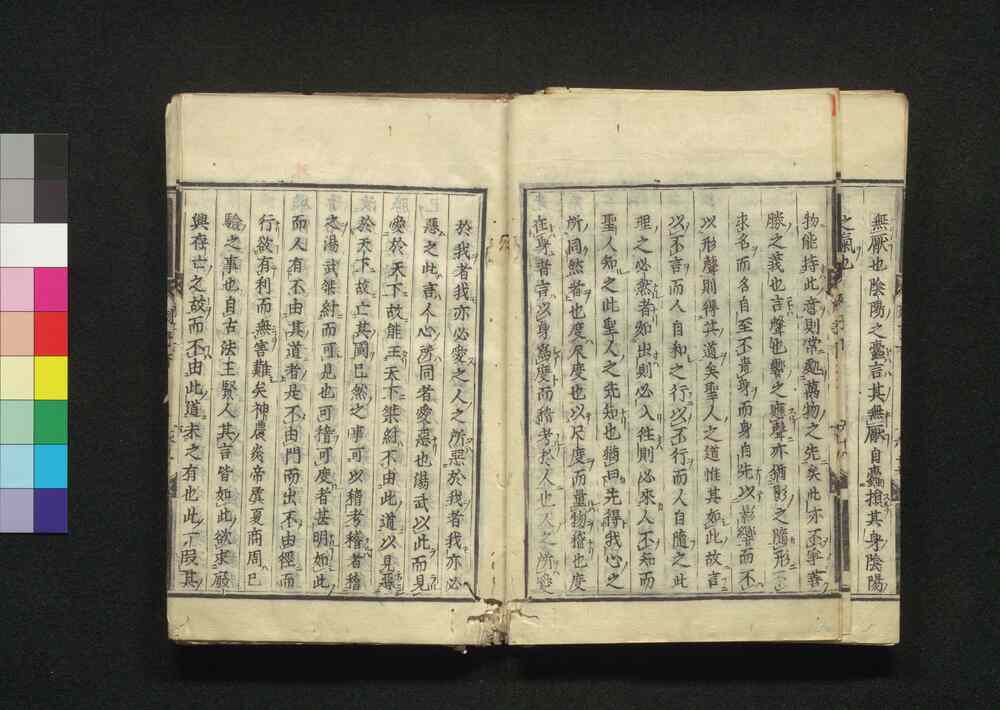 無厭也陰陽之蠹言其無厭自蠹損其身陰陽
之氣也
物能持此意則常處萬物之先矣此亦不爭善
勝之義也言聲也響之應聲亦猶影之隨形
求名而名自至不貴身而身自先以影響而不
以形聲則得其道矣聖人之道惟其如此故言
以不言而人自和之行以不行而人自隨之此
理之必然者如出則必入往則必來人不知而
聖人知之此聖人之先知也猶曰先得我心之
所同然者也度尺度也以尺度而量物稽也度
在身者言以身為度而稽考於人也人之所愛
於我者我亦必愛之人之所惡於我者我亦必
惡之此言人心所同者愛惡也湯武以此而
愛於天下故能王天下桀紂不由此道以見惡
於天下故亡其國已然之事可以稽考稽者稽
之湯武桀紂而可見也可稽可度者甚明如此
而人有不由其道者是不由門而出不由徑而
行欲有利而無害難矣神農炎帝虞夏商周已
驗之事也自古法王賢人其言皆如此欲求廢
興存亡之故而不由此道未之有也此一段其